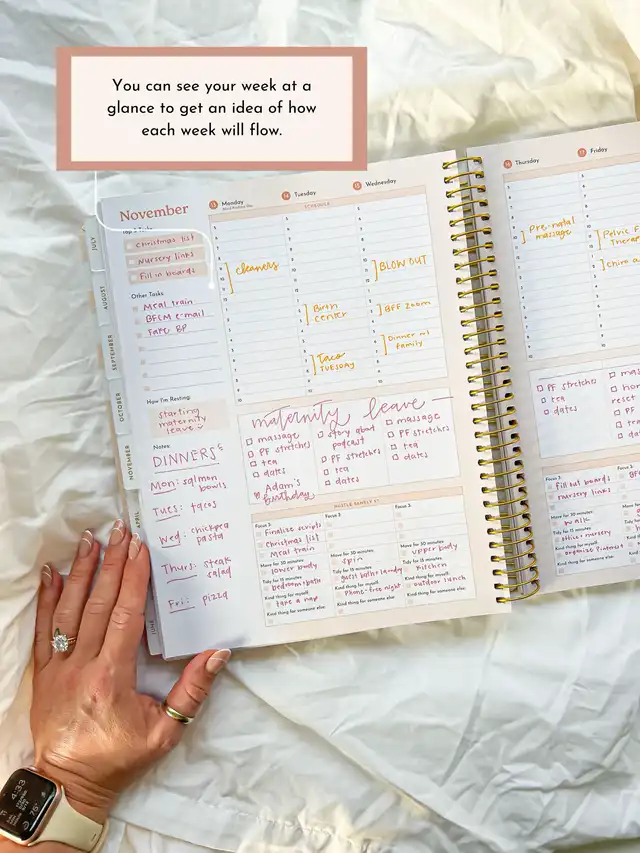 You can see your week at a
glance to get an idea of how
each week will flow.
JULY
AUGUST
SEPTEMBER
OCTOBER
NOVEMBER
APRIL
JUNE
November
Top 3 Tasks
Christmas list
Nursery links
Fill in boards
Other Tasks
Meal train
BFCM e-mail
Take BP
How I'm Resting:
starting
maternity
leave
Notes:
DINNERS
Mon: salmon
bowls
Tues: tacos
Wed: chickpea
pasta
Thurs: steak
salad
Fri: pizza
13 Monday
14 Tuesday
15 Wednesday
SCHEDULE
cleaners
Birth
center
Taco
TUESDAY
BLOW OUT
BFF Zoom
Dinner w/
family
maternity leave
massage
PF stretches
tea
dates
Adam's
birthday
story about
podcast
PF stretches
tea
dates
massage
PF stretches
tea
dates
Focus 3:
Finalize scripts
Christmas list
Meal train
Move for 30 minutes:
lower body
Tidy for 15 minutes:
bedroom + bath
Kind thing for myself:
take a nap
Kind thing for someone else:
Focus 3:
Move for 30 minutes:
spin
Tidy for 15 minutes:
guest bath + laundry
Kind thing for myself:
phone-free night
Kind thing for someone else:
Focus 3:
Move for 30 minutes:
upper body
Tidy for 15 minutes:
kitchen
Kind thing for myself:
outdoor lunch
Kind thing for someone else:
16 Thursday
17 Friday
Pre-natal
massage
Pelvic F
Thera
chiro a
PF stretches
tea
dates
fill out boards
nursery links
Move for 30 minutes:
walk
Tidy for 15 minutes:
office + nursery
Kind thing for myself:
organize Pinterest
Kind thing for someone else:
4:33
75°